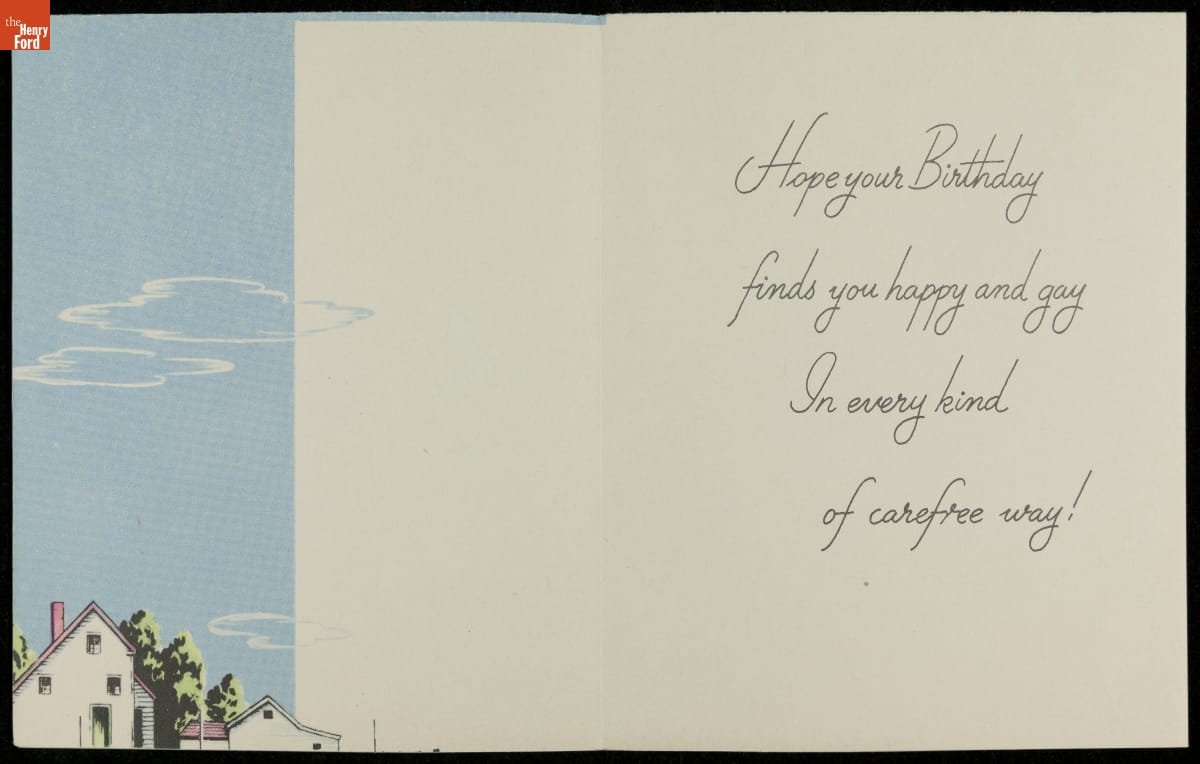 the
Henry
Ford
Hope your Birthday
finds you happy and gay
In every kind
of carefree way!